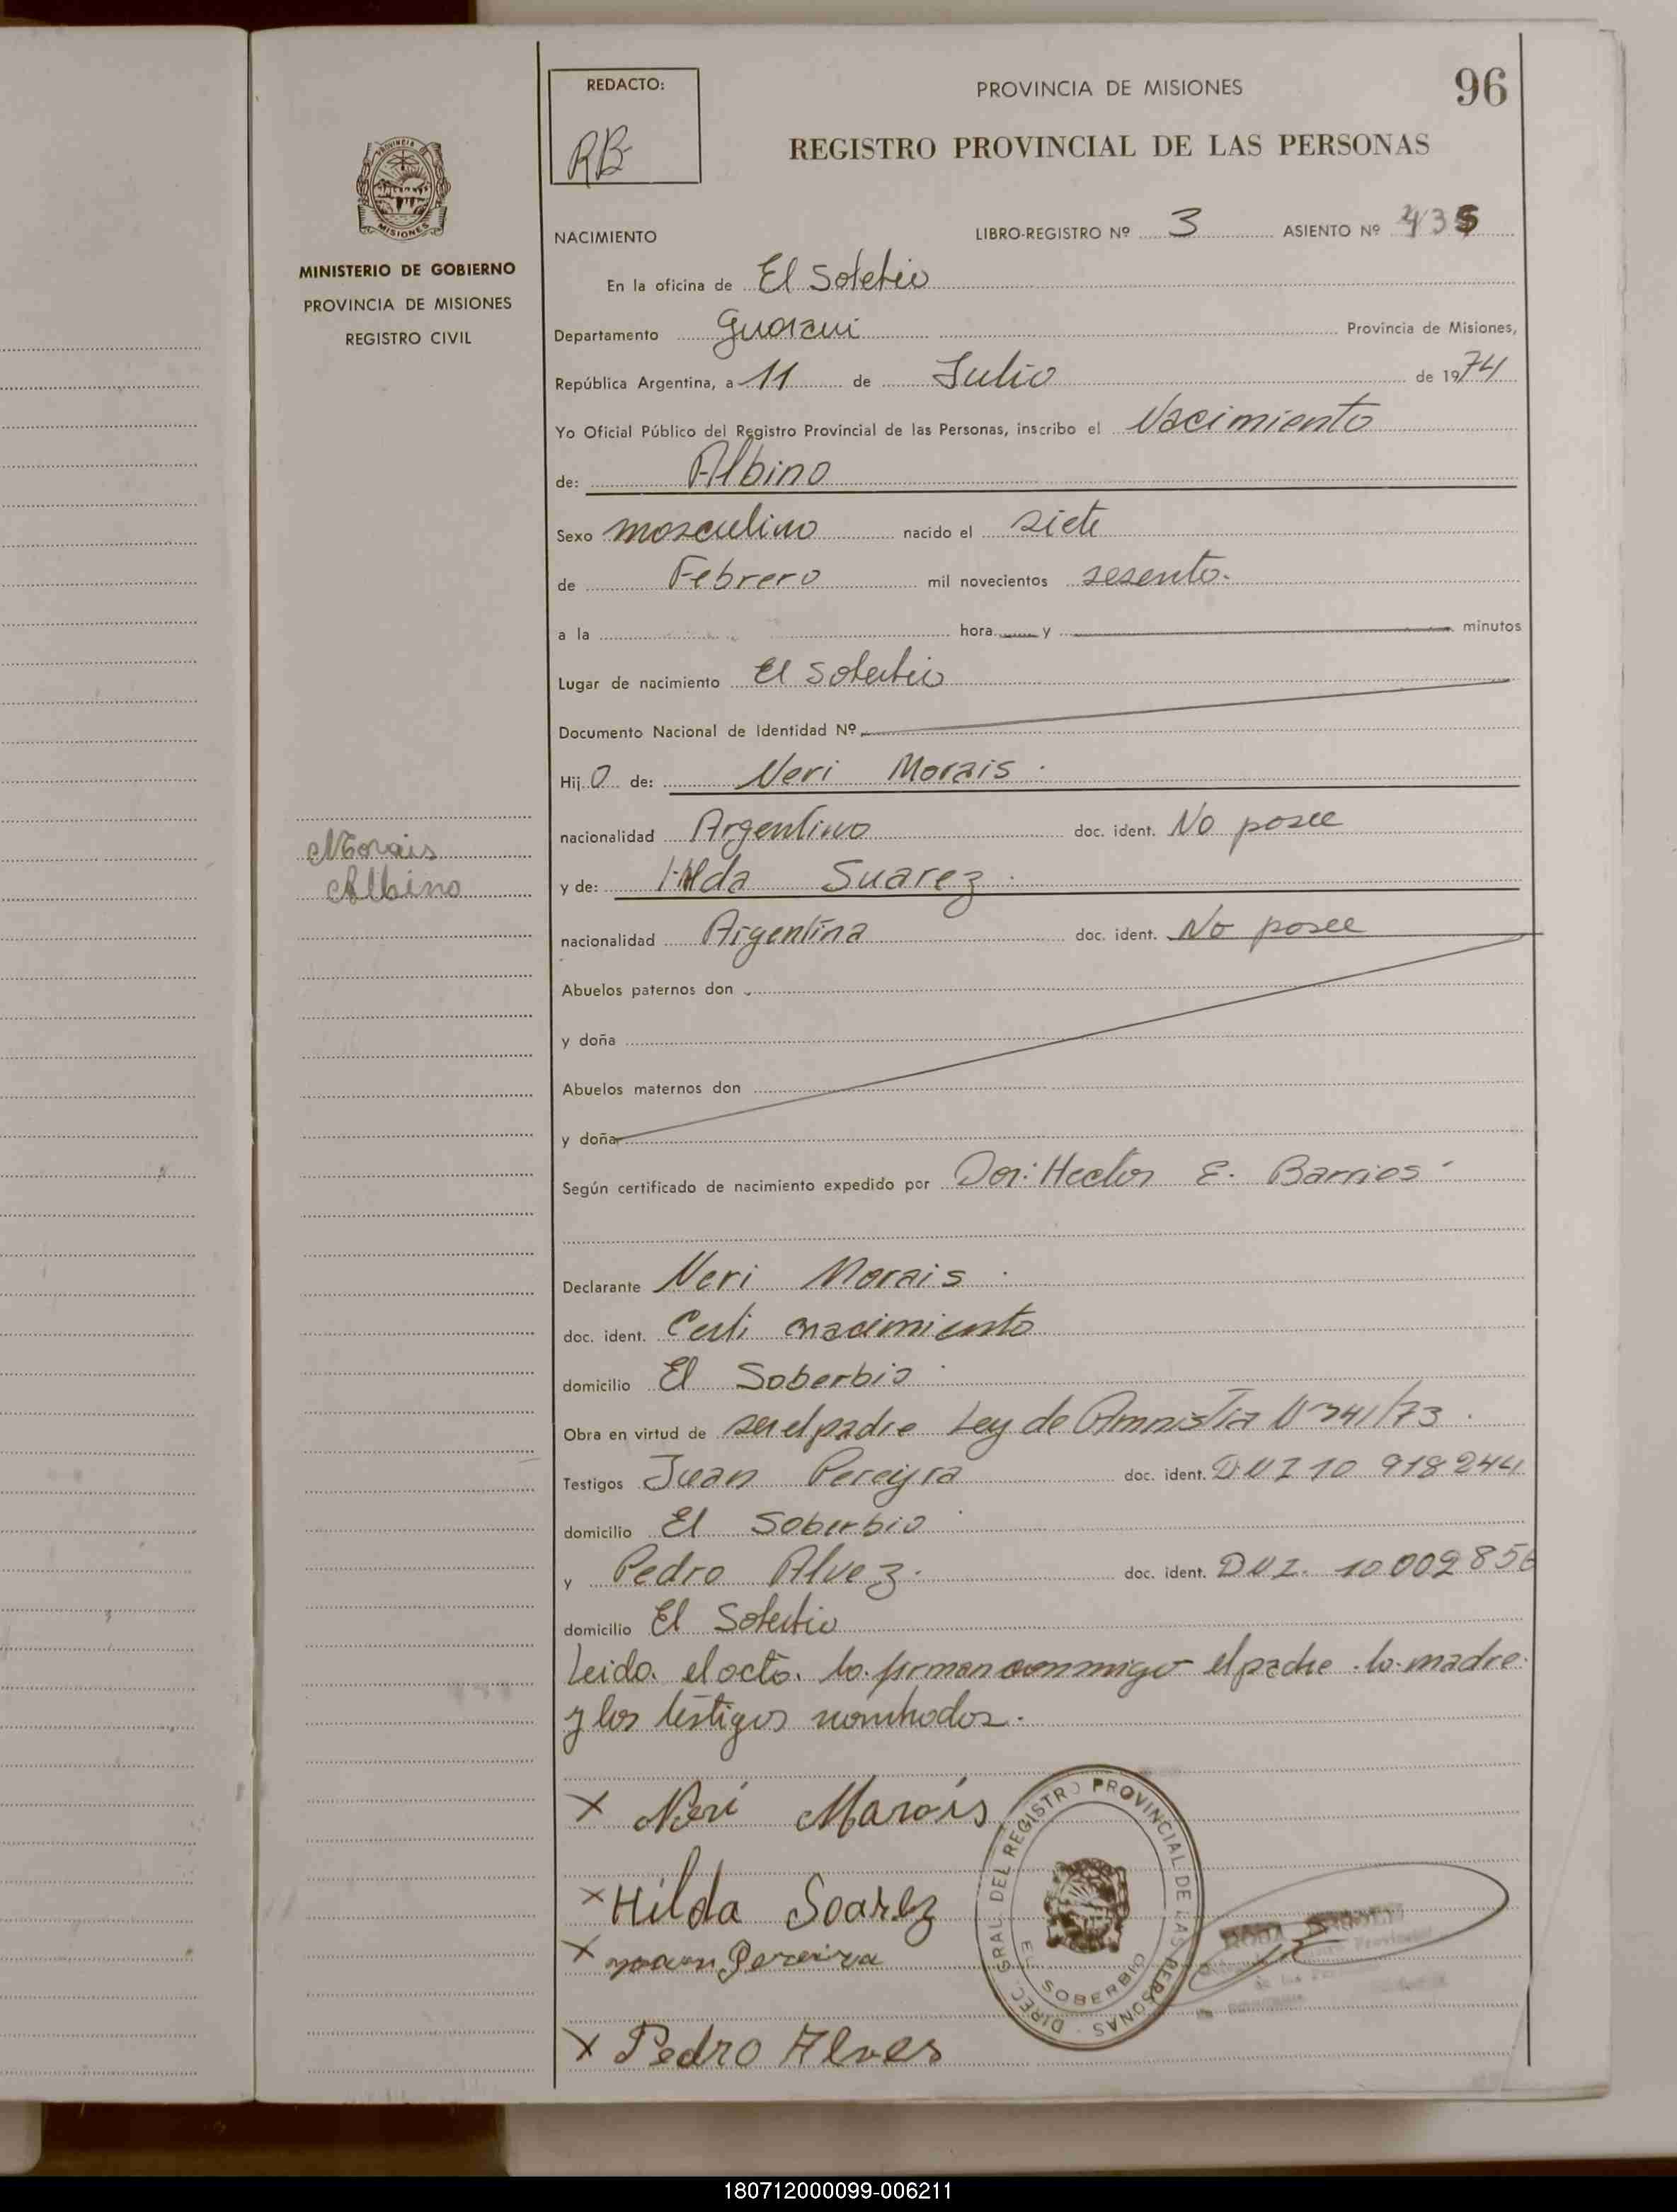 96
REDACTO:
RB
PROVINCIA DE MISIONES
REGISTRO PROVINCIAL DE LAS PERSONAS
PROVINCIA DE MISIONES
MINISTERIO DE GOBIERNO
PROVINCIA DE MISIONES
REGISTRO CIVIL
NACIMIENTO LIBRO-REGISTRO Nº 3 ASIENTO Nº 435
En la oficina de El Soberbio
Departamento Guarani Provincia de Misiones,
República Argentina, a 11 de Julio de 1974
Yo Oficial Público del Registro Provincial de las Personas, inscribo el Nacimiento
de: Albino
Sexo masculino nacido el siete
de Febrero mil novecientos sesenta.
a la hora y minutos
Lugar de nacimiento El Soberbio
Documento Nacional de Identidad Nº
Hij o de: Neri Morais.
nacionalidad Argentino doc. ident. No posee
Morais
Albino
y de: Hilda Suarez.
nacionalidad Argentina doc. ident. No posee
Abuelos paternos don
y doña
Abuelos maternos don
y doña
Según certificado de nacimiento expedido por Dor: Hector E. Barrios
Declarante Neri Morais.
doc. ident. Certi nacimiento
domicilio El Soberbio
Obra en virtud de ser el padre Ley de Amnistia Nº 741/73.
Testigos Juan Pereyra doc. ident. DNI 10 918244
domicilio El Soberbio
y Pedro Alvez. doc. ident. DNI. 10 002 856
domicilio El Soberbio
Leida el acta. la firman conmigo el padre la madre
y los testigos nombrados.
X Neri Marais
X Hilda Soarez
X Pereira
X Pedro Alves
DIREC. GRAL. DEL REGISTRO PROVINCIAL DE LAS PERSONAS
EL SOBERBIO
180712000099-006211